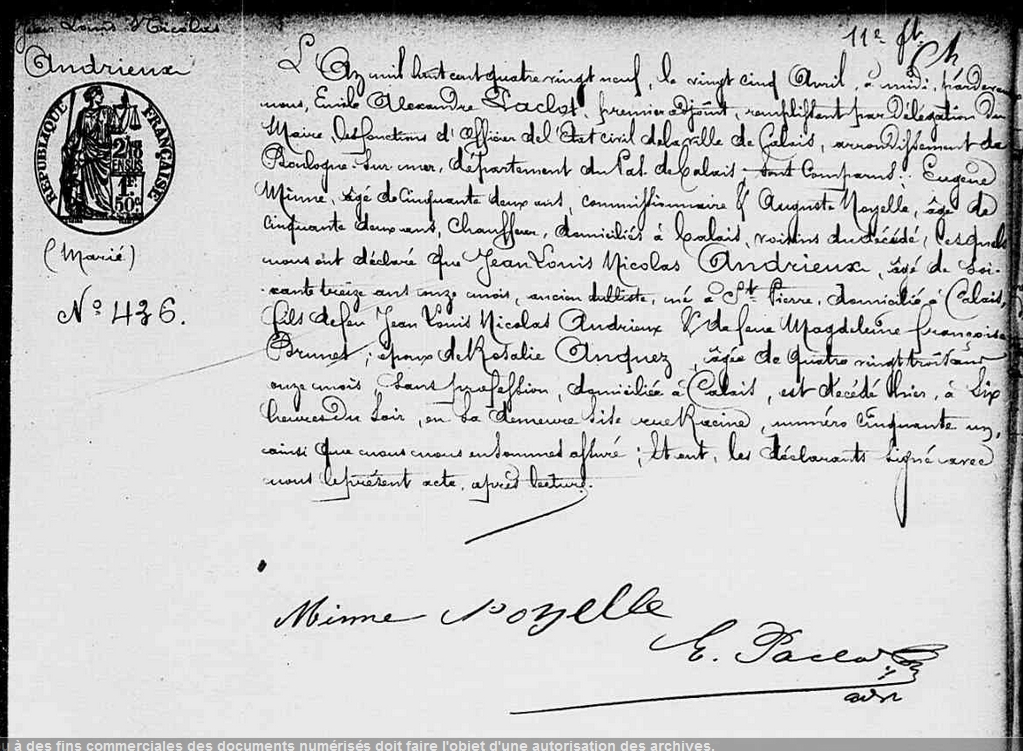 Jean Louis Nicolas
Andrieux
11e ft.
RÉPUBLIQUE FRANÇAISE
2/10
EN SUS
1F.
50c
(Marié)
No 436.
L'An mil huit cent quatre vingt neuf, le vingt cinq Avril, à midi, pardevant
nous, Emile Alexandre Paclot, premier adjoint, remplissant par Délégation du
Maire, les fonctions d'Officier de l'Etat civil de la ville de Calais, arrondissement de
Boulogne-sur-mer, département du Pas de Calais - sont Comparus: Eugène
Minne, âgé de Cinquante deux ans, commissionnaire & Auguste Noyelle, âgé de
Cinquante deux ans, Chauffeur, domiciliés à Calais, voisins du décédé, lesquels
nous ont déclaré que Jean Louis Nicolas Andrieux, âgé de Soi-
-xante treize ans onze mois, ancien tulliste, né à St Pierre, domicilié à Calais,
fils de feu Jean Louis Nicolas Andrieux & de feue Magdeleine Françoise
Brunet; époux de Rosalie Anquez, âgée de quatre vingt trois ans
onze mois, sans profession, domiciliée à Calais, est décédé hier, à six
heures du soir, en sa demeure sise rue Racine, numéro Cinquante un,
ainsi que nous nous en sommes assuré; Et ont, les déclarants signé avec
nous le présent acte, après lecture.
Minne Noyelle
E. Paclot
adjt
u à des fins commerciales des documents numérisés doit faire l'objet d'une autorisation des archives.